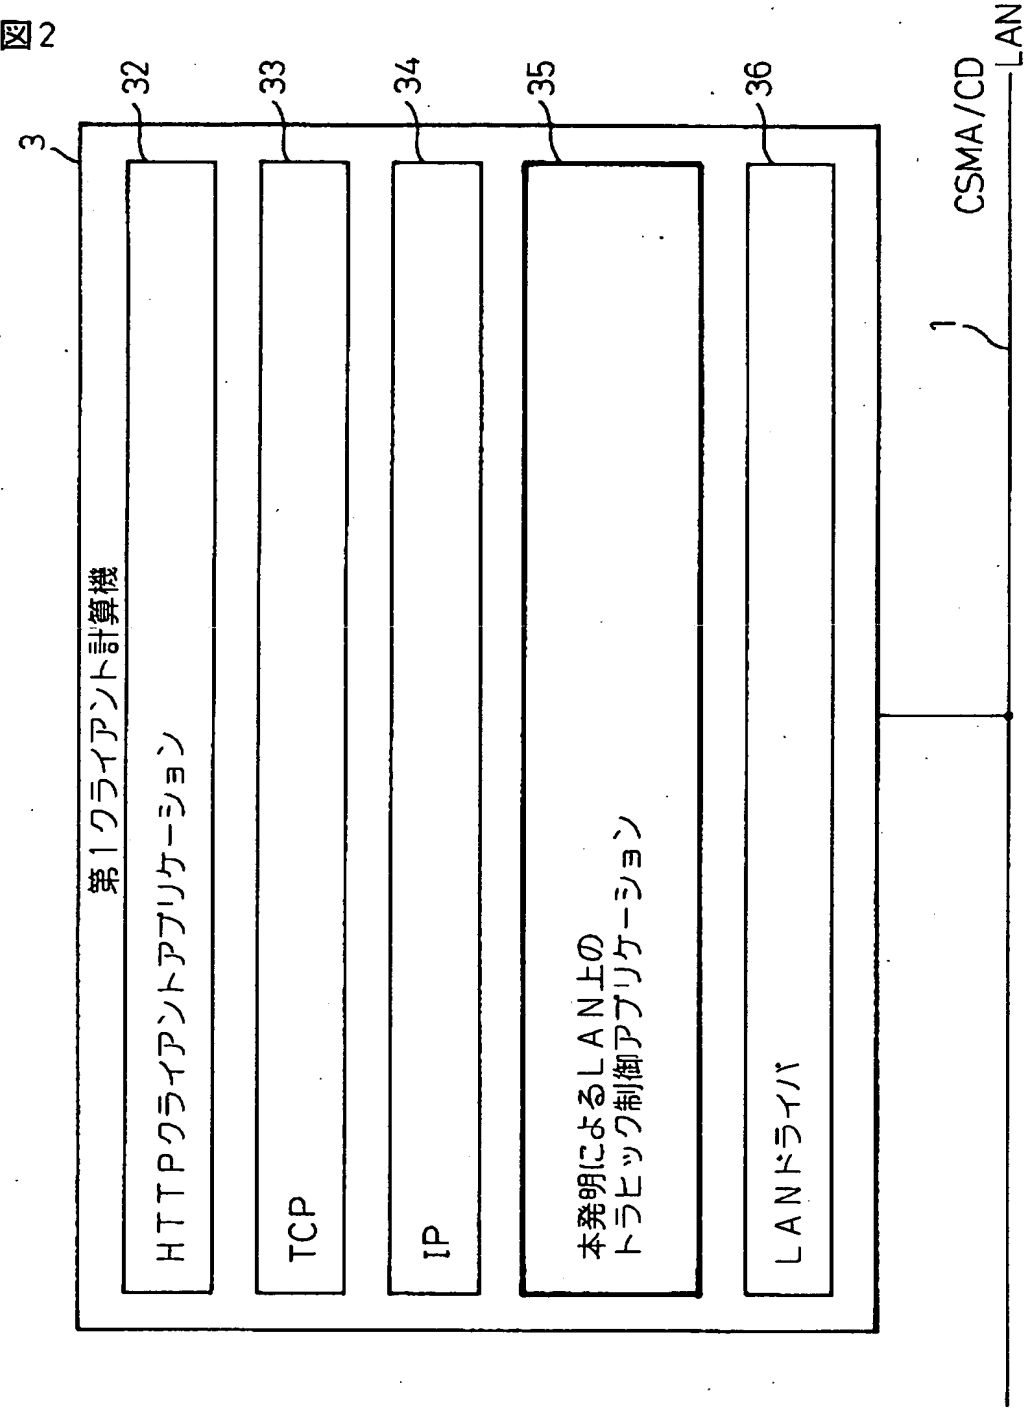 図2
3
第1クライアント計算機
HTTPクライアントアプリケーション
32
TCP
33
IP
34
本発明によるLAN上の
トラヒック制御アプリケーション
35
LANドライバ
36
CSMA/CD
1
LAN